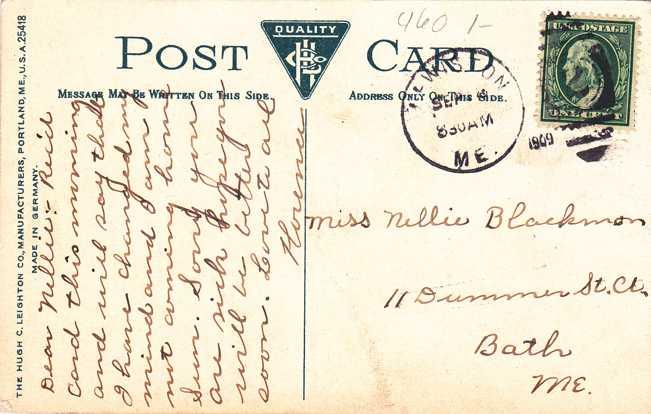 THE HUGH C. LEIGHTON CO., MANUFACTURERS, PORTLAND, ME., U.S.A. 25418
MADE IN GERMANY.
460 1-
QUALITY
POST CARD
MESSAGE MAY BE WRITTEN ON THIS SIDE.
ADDRESS ONLY ON THIS SIDE.
Dear Nellie:- Rec'd
card this morning
and will say that
I have changed my
mind and I am
not coming home
Sun. Sorry you
are sick hope you
will be better
soon. Love to all
Florence
LEWISTON
SEP 4
830AM
ME.
1909
U.S. POSTAGE
ONE CENT
Miss Nellie Blackmon
11 Dummer St. Ct.
Bath
Me.